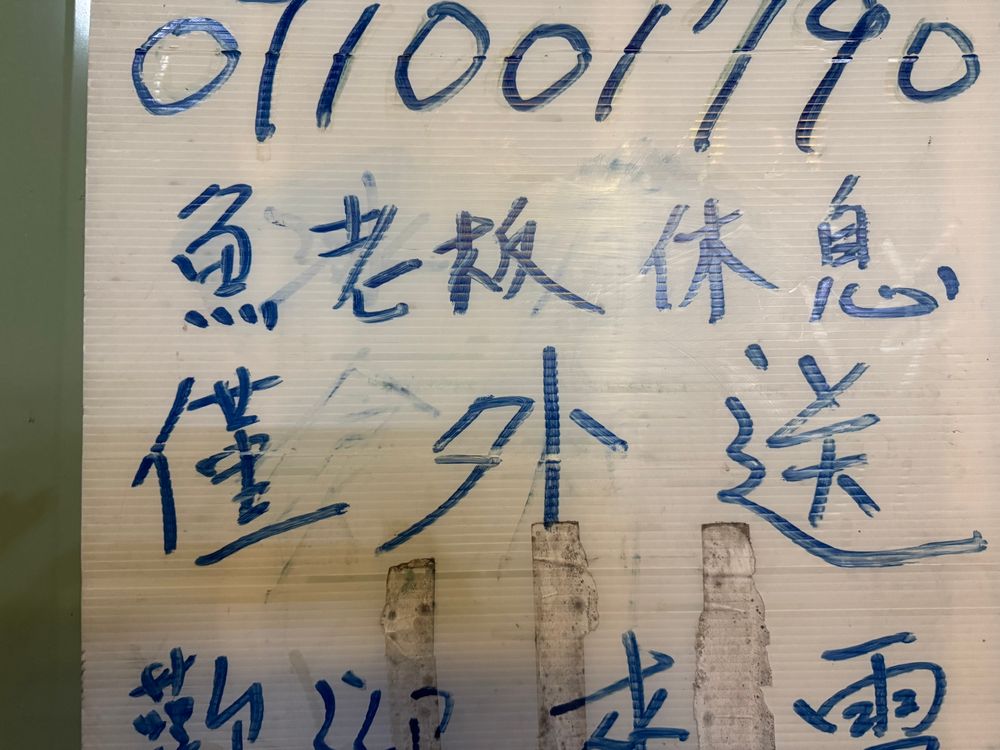 071001790
魚老板 休息
僅外送
歡迎來電